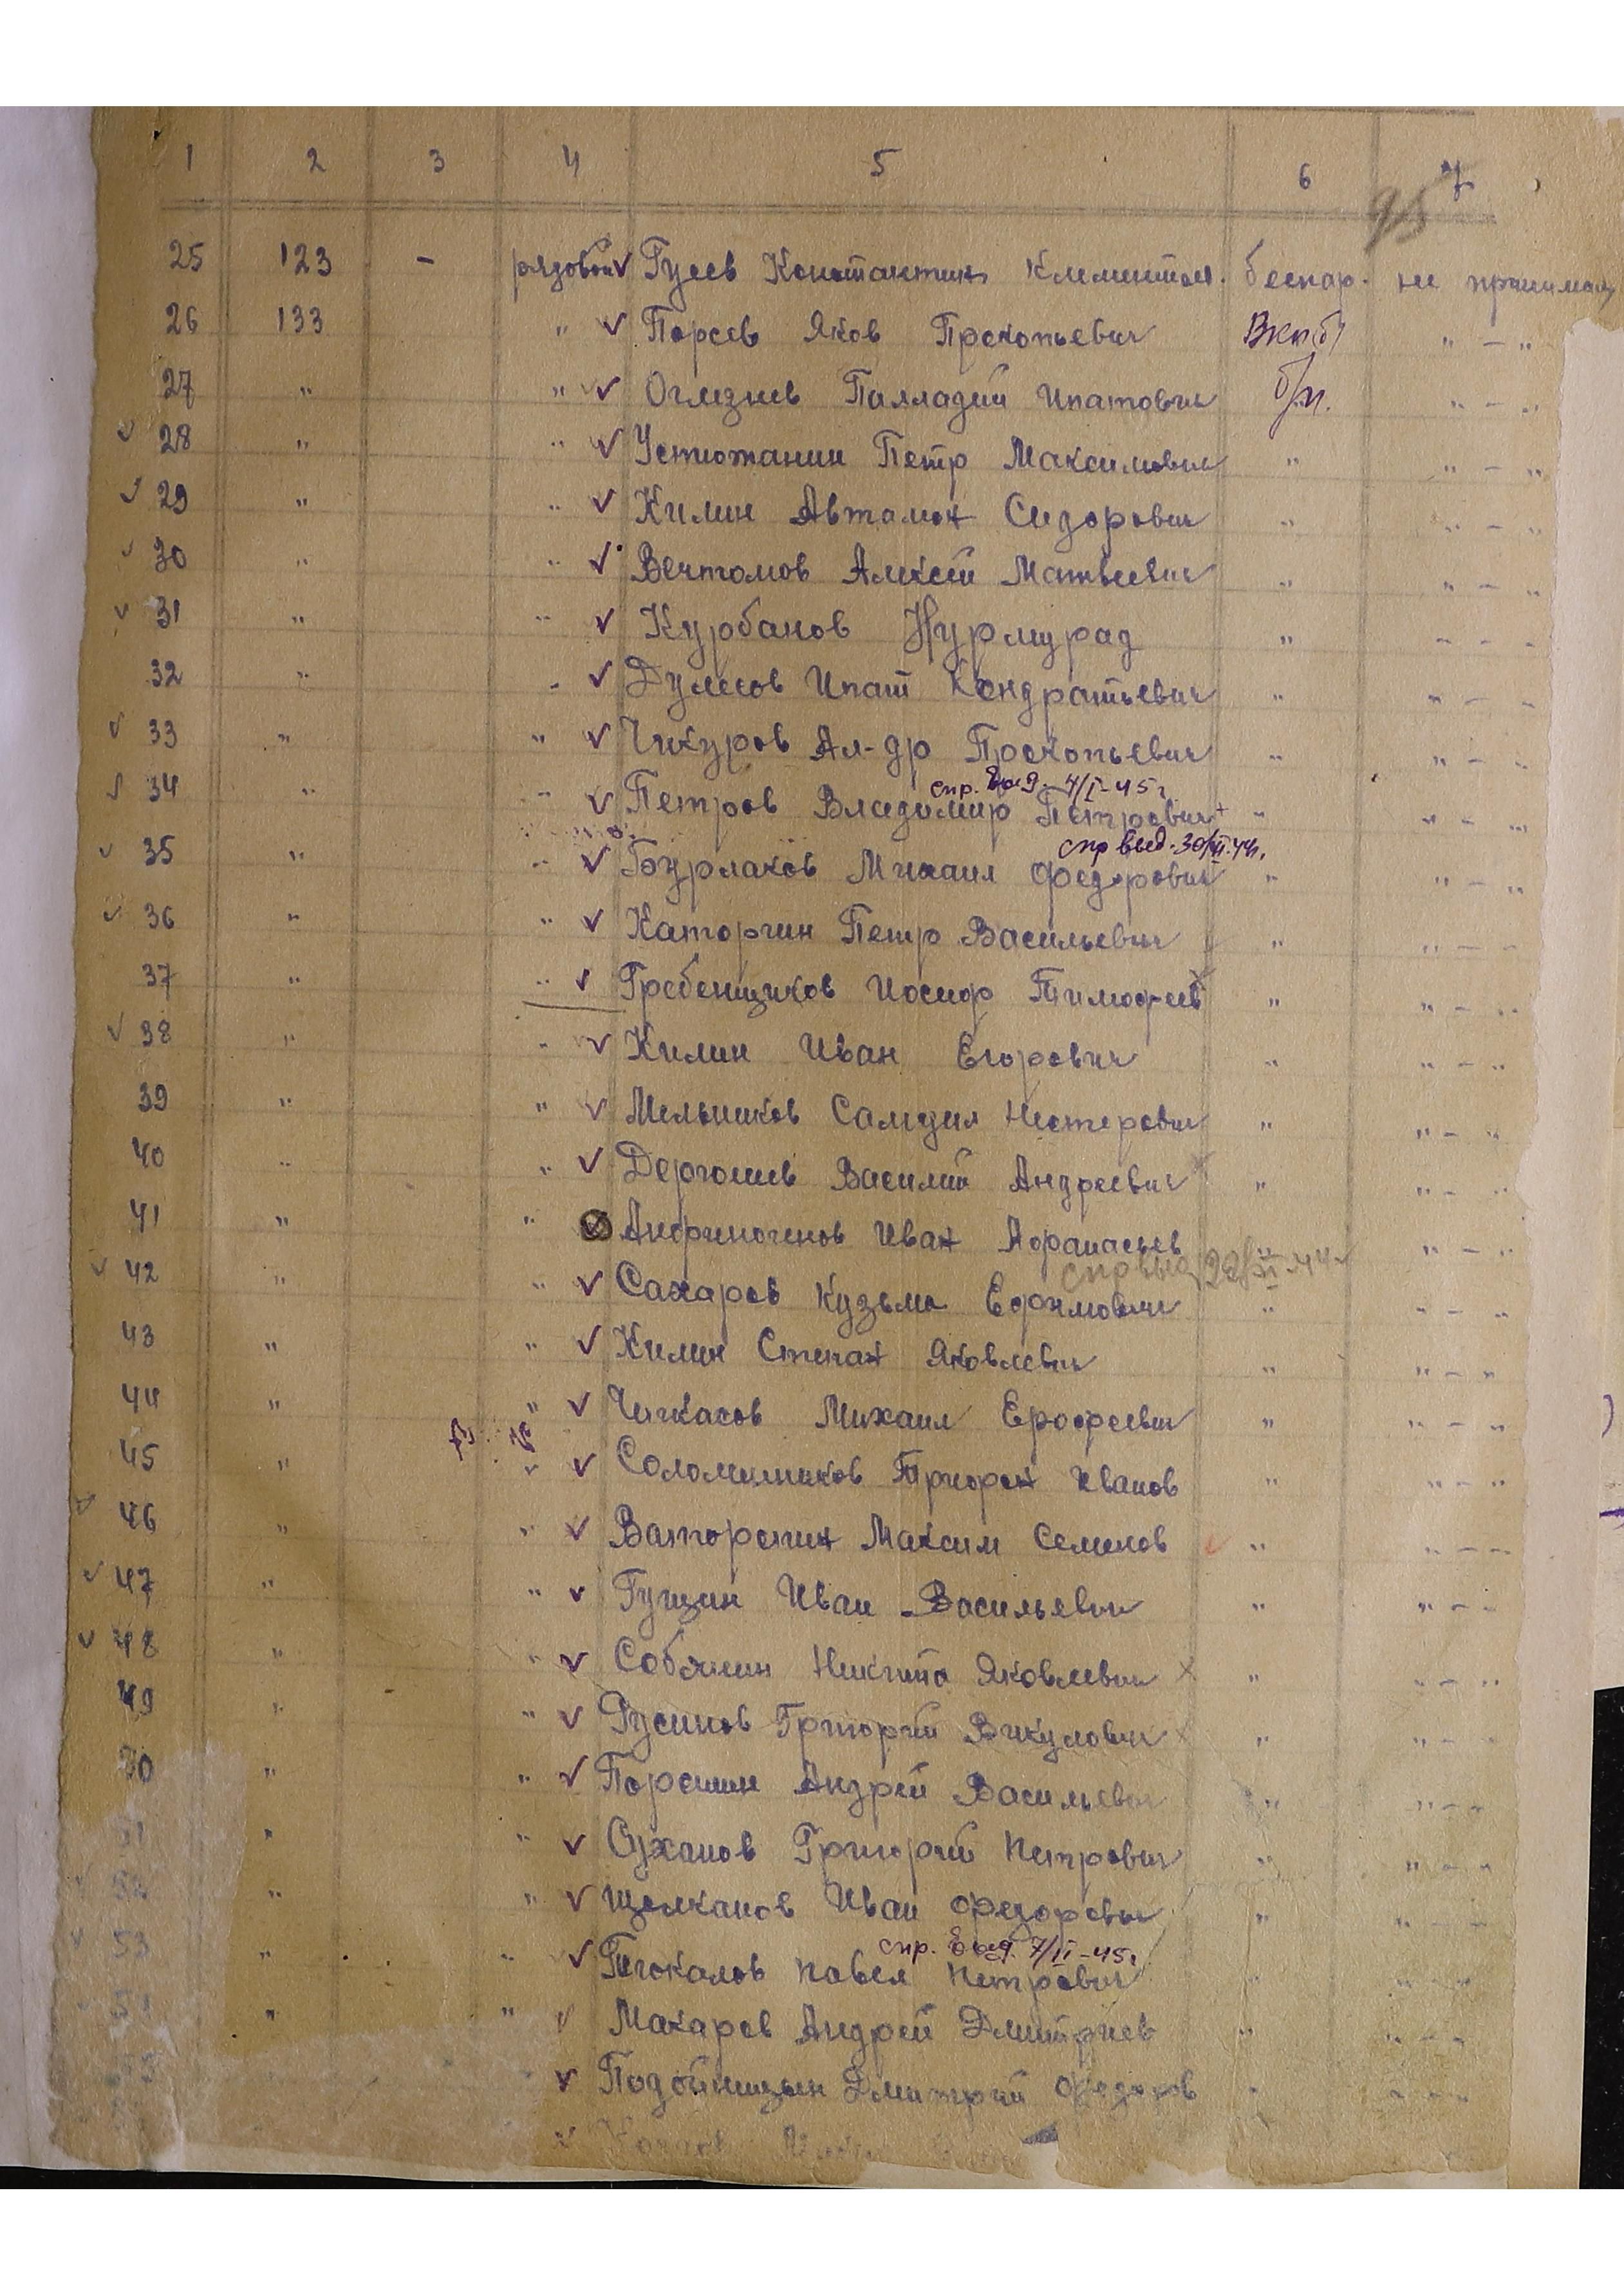 1 2 3 4 5 6 7
95
25 123 - рядовой Гусев Константин Климентов. беспар. не принимал
26 133 " Порсев Яков Прокопьевич Вкп(б) " - "
27 " " Оглезнев Палладий Ипатович б/п. " - "
28 " " Устюжанин Петр Максимович " " - "
29 " " Килин Автамон Сидорович " " - "
30 " " Вентомов Алексей Матвеевич " " - "
31 " " Курбанов Нурмурад " " - "
32 " " Дулесов Ипат Кондратьевич " " - "
33 " " Чикуров Ал-др Прокопьевич " " - "
спр. выд. 4/I-45г.
34 " " Петров Владимир Петрович " " - "
спр выд. 30/XII.44г.
35 " " Бурлаков Михаил Федорович " " - "
36 " " Каторгин Петр Васильевич " " - "
37 " " Гребенщиков Иосиф Тимофеев " " - "
38 " " Килин Иван Егорович " " - "
39 " " Мельников Самуил Нестерович " " - "
40 " " Василий Андреевич " " - "
41 " " Андриногенов Иван Афанасьев " " - "
спр выд 44г
42 " " Сахаров Кузьма Ефимович " " - "
43 " " Килин Степан Яковлевич " " - "
44 " " Чичкасов Михаил Ерофеевич " " - "
45 " " Соломенников Трифон Иванов " " - "
46 " " Ваторопин Максим Семенов " " - "
47 " " Гущин Иван Васильевич " " - "
48 " " Собянин Никита Яковлевич " " - "
49 " " Русинов Григорий Викулович " " - "
50 " " Поршин Андрей Васильевич " " - "
51 " " Суханов Григорий Петрович " " - "
52 " " Щелканов Иван Федорович " " - "
спр. выд. 7/II-45г
53 " " Павел Петрович " " - "
54 " " Макаров Андрей Дмитриев " " - "
55 Подойницын Дмитрий Федоров " " - "